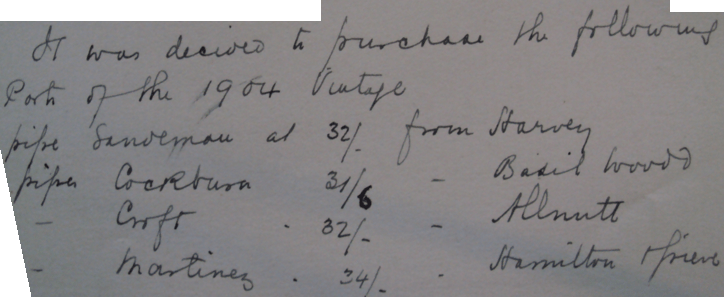 It was decided to purchase the following
Ports of the 1904 Vintage
pipe Sandeman at 32/- from Harvey
pipes Cockburn 31/6 - Basil Woodd
- Croft . 32/- - Allnutt
- Martinez . 34/- - Hamilton & Grieve